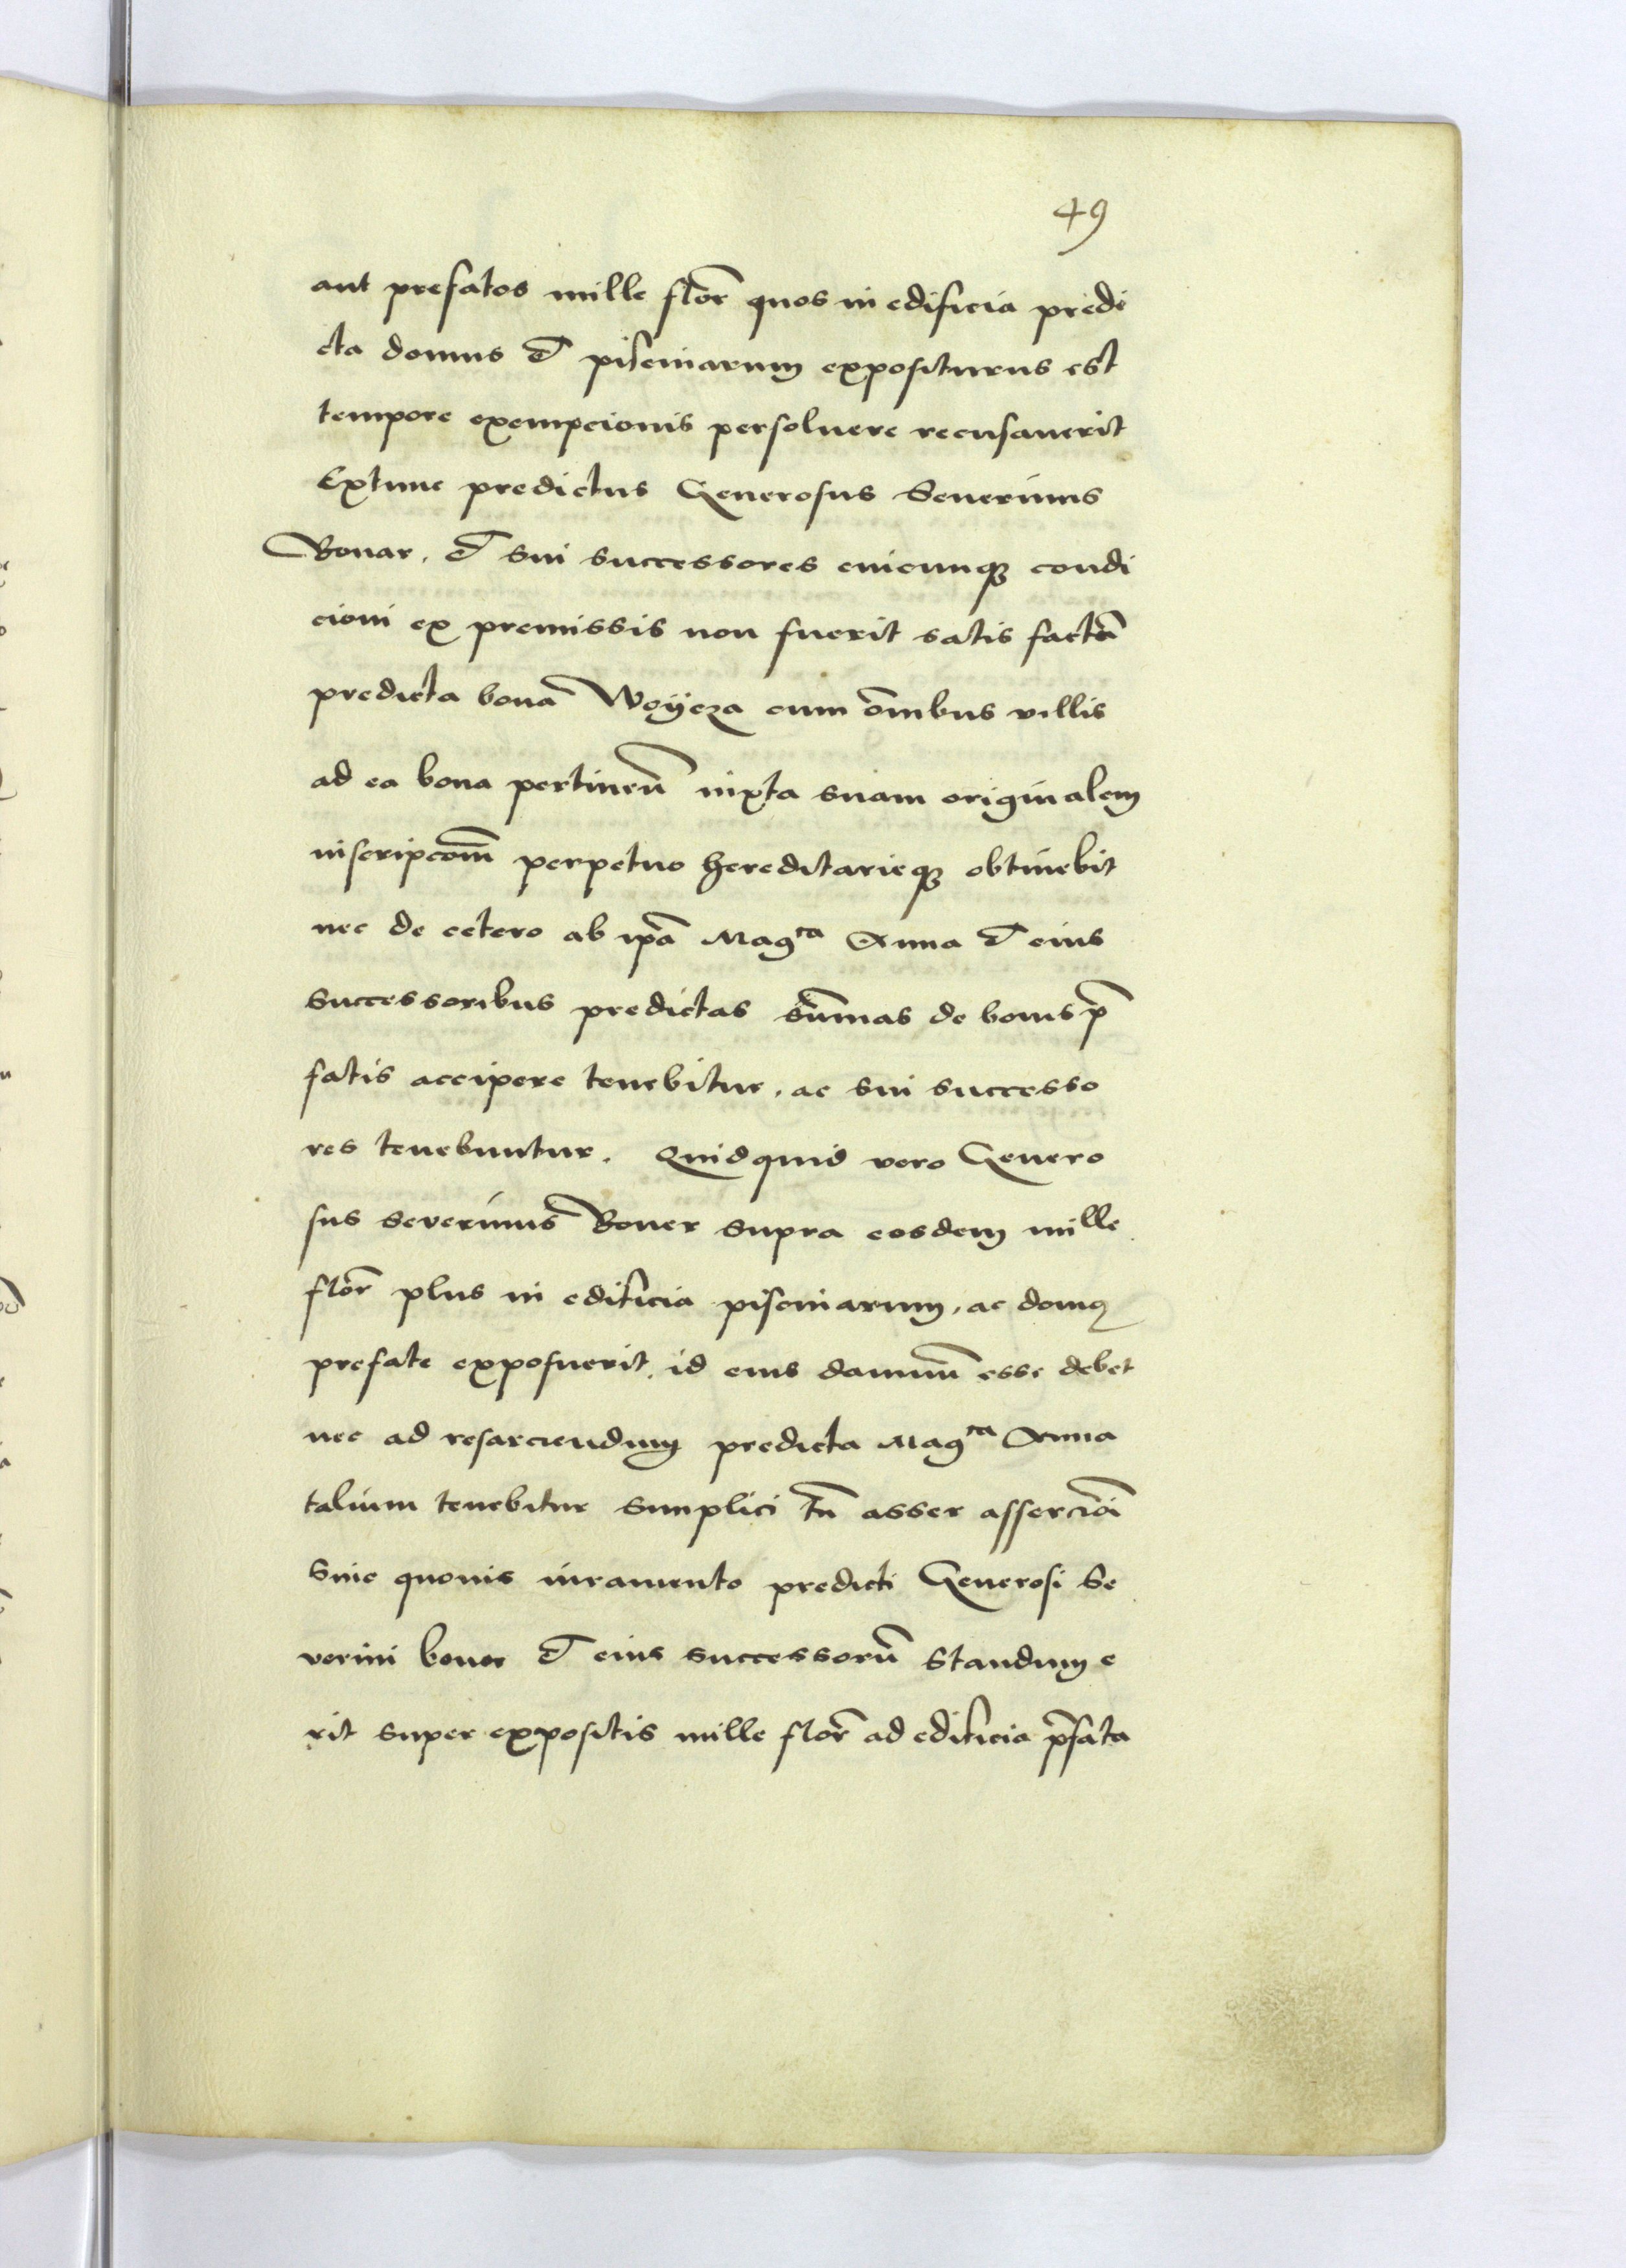 49
aut prefatos mille flor̄ quos in edificia predi
cta domus et piscinarum expositurus est
tempore exempcionis persoluere recusauerit
Extunc predictus Generosus Seuerinus
Bonar. et sui successores cuicunq₃ condi
cioni ex premissis non fuerit satis factū
predicta bona Woycza cum om̄ibus villis
ad ea bona pertinen̄ iuxta suam originalem
inscripcōm̄ perpetuo hereditarieq₃ obtinebit
nec de cetero ab ip̄a Mag^ca Anna et eius
successoribus predictas sūmas de bonis p̄
fatis accipere tenebitur, ac sui successo
res tenebuntur. Quidquid vero Genero
sus Severinus Boner supra eosdem mille
flor̄ plus in edificia piscinarum, ac domꝫ
prefate exposuerit, id eius damnū esse debet
nec ad resarciendum predicta Mag^ca Anna
talium tenebitur simplici tn̄ asser assercioī
sine quouis iuramento predicti Generosi Se
verini boner et eius successorū standum e
rit super expositis mille flor̄ ad edificia p̄fata